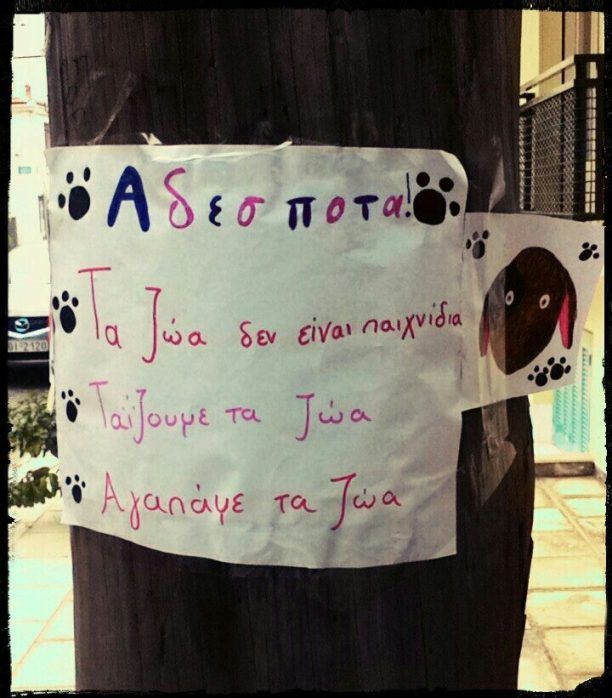 Αδεσποτα!
Τα ζώα δεν είναι παιχνίδια
Ταΐζουμε τα ζώα
Αγαπάμε τα ζώα